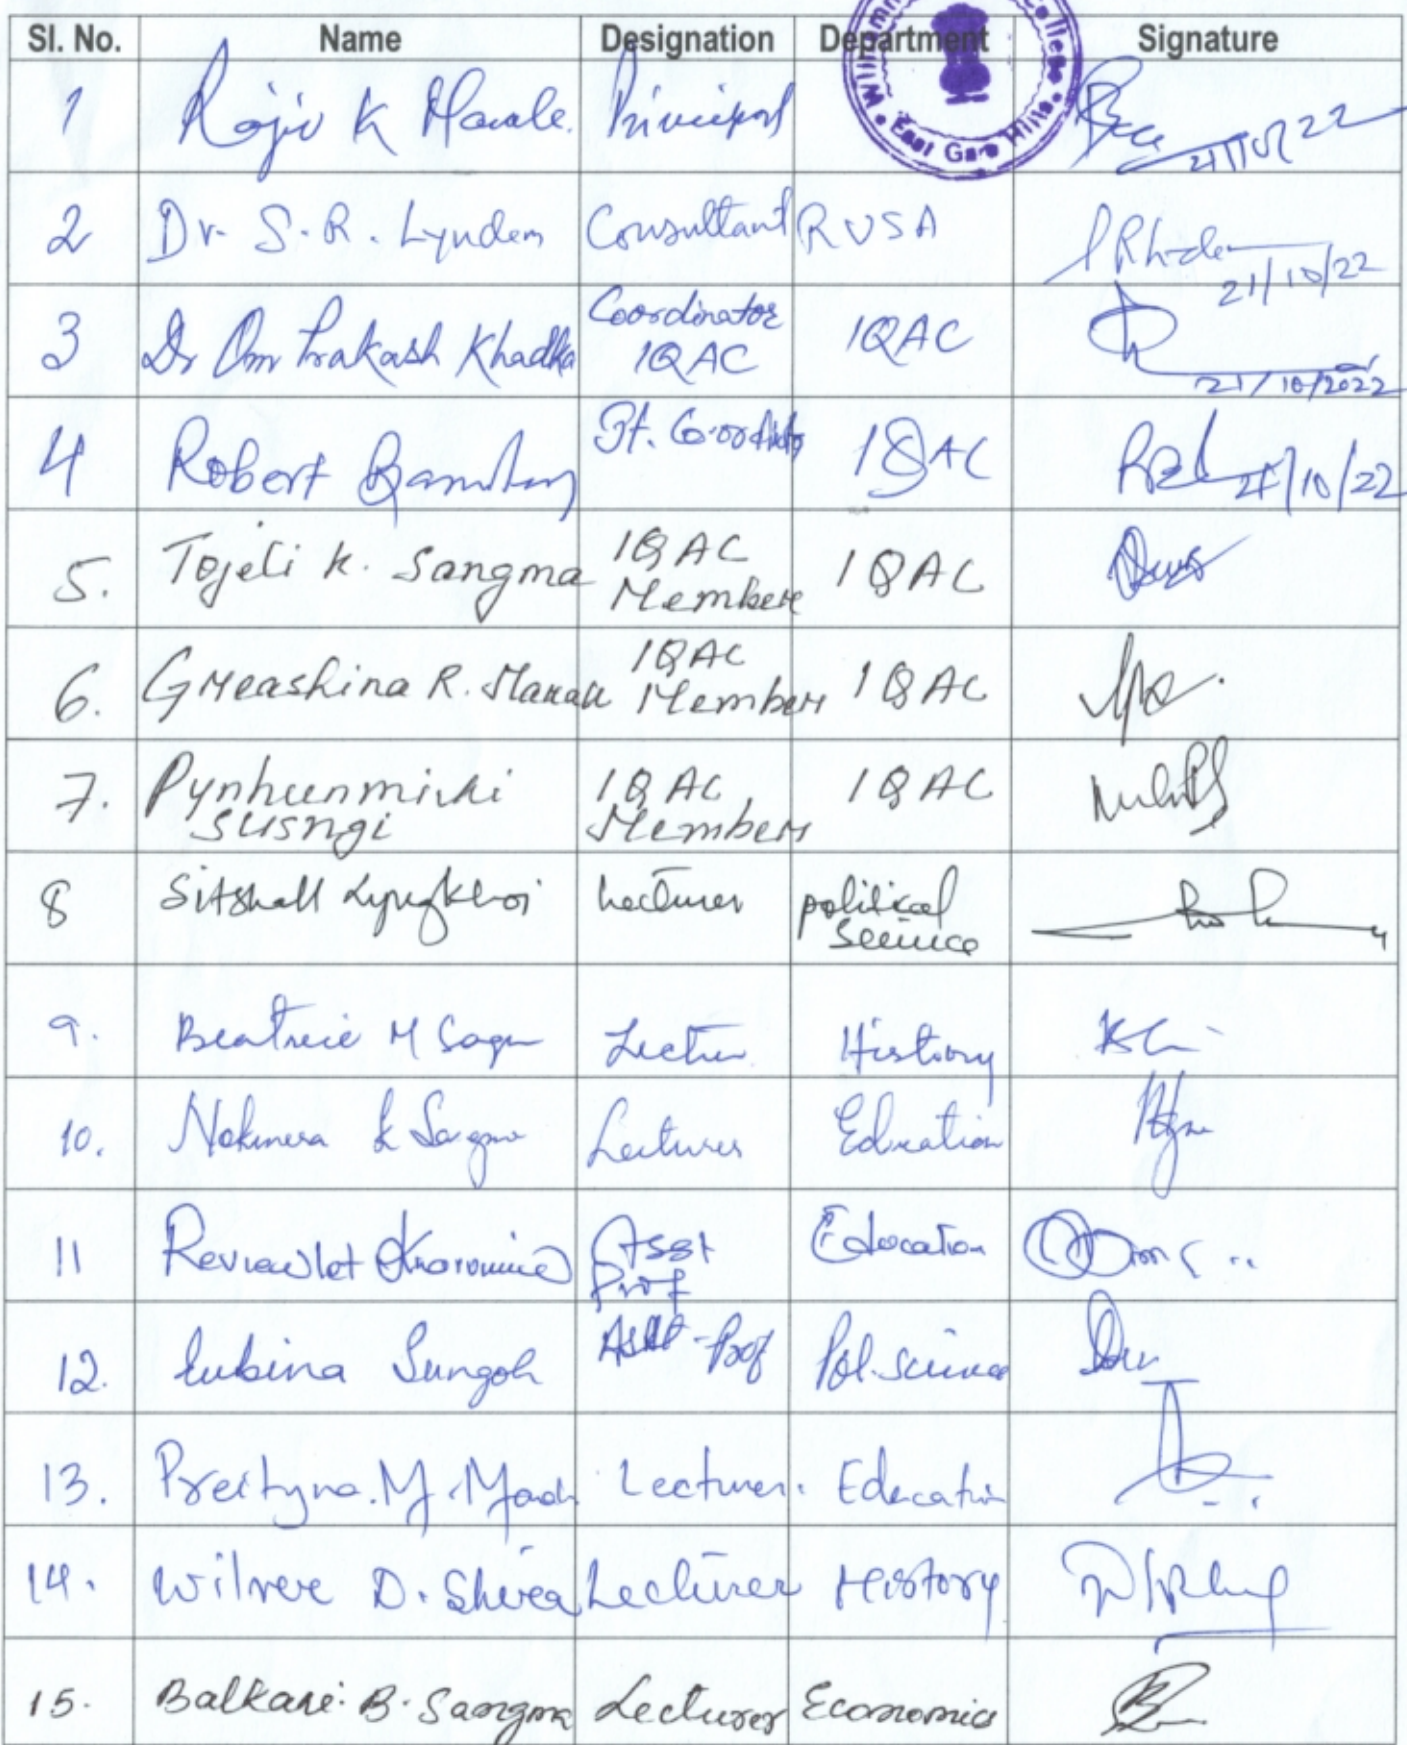 Sl. No. Name Designation Department Signature
1 Rajiv K Marak Principal
21/10/22
2 Dr. S. R. Lyndem Consultant RUSA
21/10/22
3 Dr Om Prakash Khadka Coordinator IQAC IQAC
21/10/2022
4 Robert Jt. Co-ordinator IQAC
21/10/22
5. Tojeli K. Sangma IQAC Member IQAC
6. Greashina R. Marak IQAC Member IQAC
7. Pynhunmiki Susngi IQAC Member IQAC
8 Sitshall Lyngkhoi Lecturer political Science
9. Beatrice M Sangma Lecturer History
10. Nokmera K Sangma Lecturer Education
11 Reviewlet Kharumnuid Asst Prof Education
12. Iubina Sungoh Asst-Prof Pol. Science
13. Preityna. M. Lecturer. Education
14. Wilnere D. Shira Lecturer History
15. Balkare B. Sangma Lecturer Economics
College
East Garo Hills